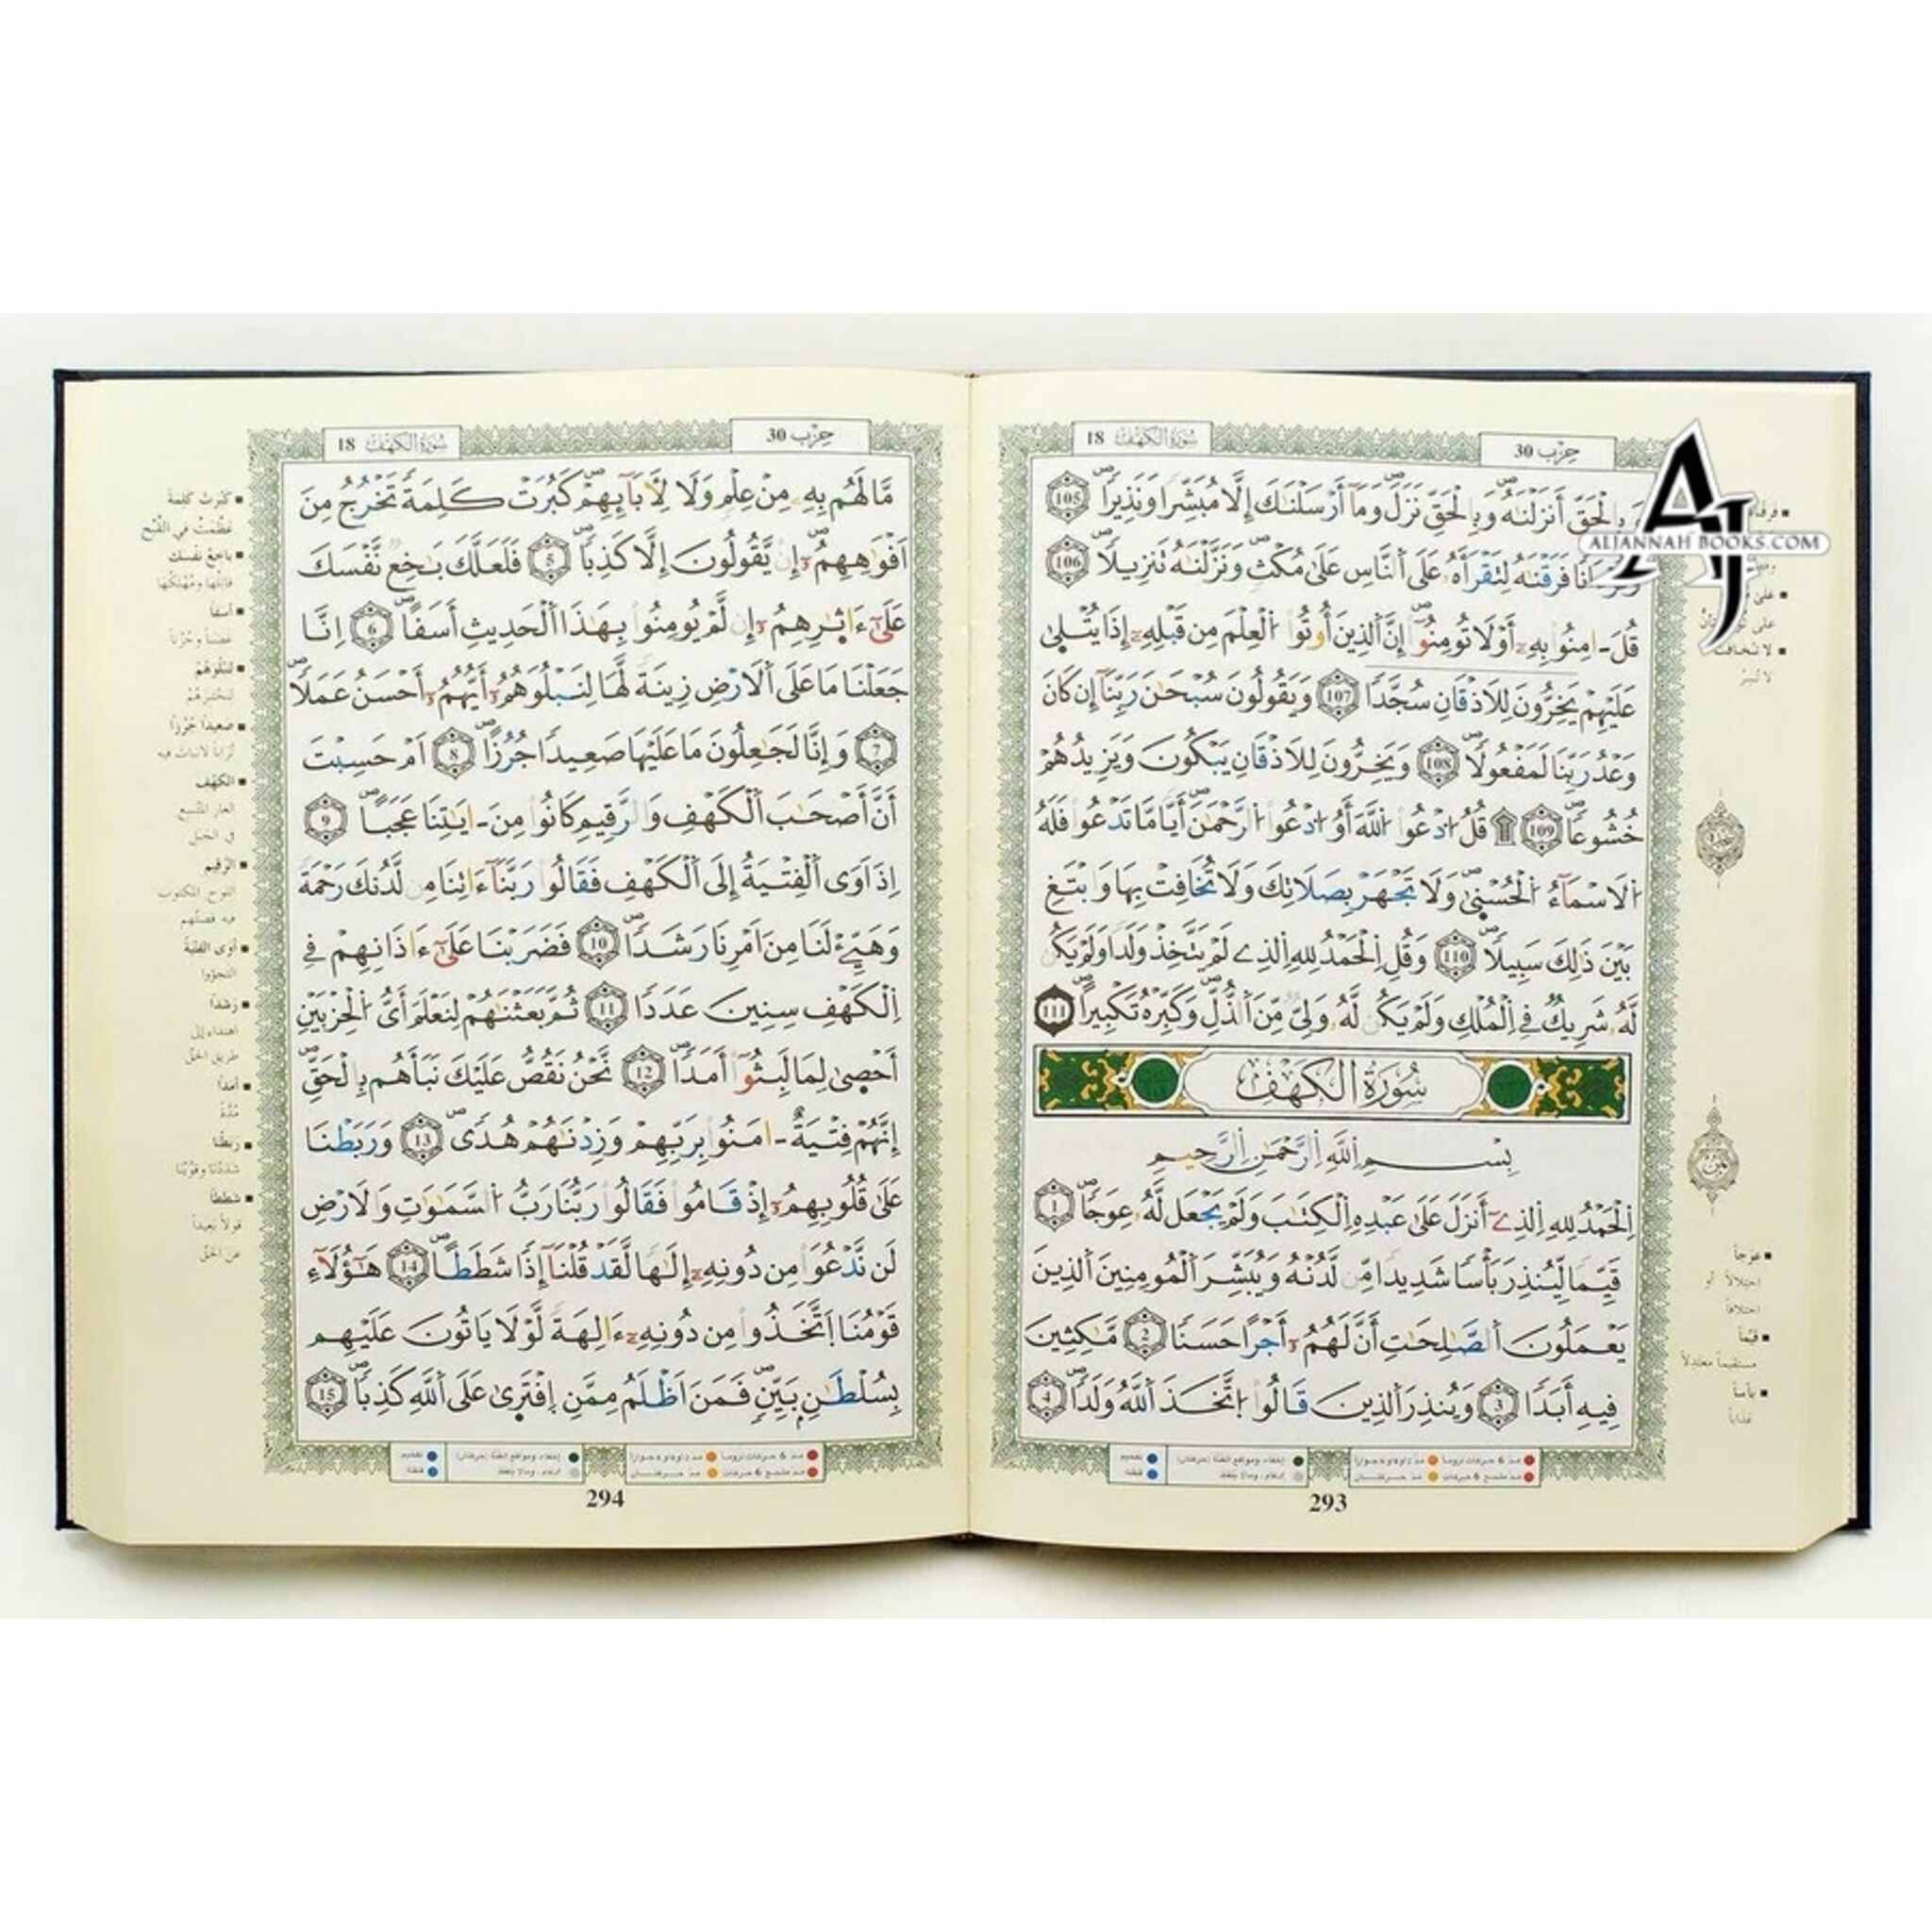 حِزْب 30
سُورَةُ الكَهْف 18
وَبِالْحَقِّ أَنزَلْنَٰهُ وَبِالْحَقِّ نَزَلَ وَمَآ أَرْسَلْنَٰكَ إِلَّا مُبَشِّرًا وَنَذِيرًا 105
فَرَقْنَٰهُ لِتَقْرَأَهُۥ عَلَى اَلنَّاسِ عَلَىٰ مُكْثٍ وَنَزَّلْنَٰهُ تَنزِيلًا 106
قُلَ اٰمِنُوا بِهِۦٓ أَوْ لَا تُومِنُوٓا إِنَّ اَلذِينَ أُوتُوا اُلْعِلْمَ مِن قَبْلِهِۦٓ إِذَا يُتْلَىٰ
عَلَيْهِمْ يَخِرُّونَ لِلَاذْقَانِ سُجَّدًا 107 وَيَقُولُونَ سُبْحَٰنَ رَبِّنَآ إِن كَانَ
وَعْدُ رَبِّنَا لَمَفْعُولًا 108 وَيَخِرُّونَ لِلَاذْقَانِ يَبْكُونَ وَيَزِيدُهُمْ
خُشُوعًا 109 ۞ قُلُ اُدْعُوا اُللَّهَ أَوُ اُدْعُوا اُلرَّحْمَٰنَ أَيًّا مَّا تَدْعُوا فَلَهُ
اُلَاسْمَآءُ اُلْحُسْنَىٰ وَلَا تَجْهَرْ بِصَلَاتِكَ وَلَا تُخَافِتْ بِهَا وَابْتَغِ
بَيْنَ ذَٰلِكَ سَبِيلًا 110 وَقُلِ اِلْحَمْدُ لِلهِ اِلذِے لَمْ يَتَّخِذْ وَلَدًا وَلَمْ يَكُن
لَّهُۥ شَرِيكٌ فِے اِلْمُلْكِ وَلَمْ يَكُن لَّهُۥ وَلِيٌّ مِّنَ اَلذُّلِّ وَكَبِّرْهُ تَكْبِيرًا 111
سُورَةُ الكَهْف
بِسْمِ اِللَّهِ اِلرَّحْمَٰنِ اِلرَّحِيمِ
اِلْحَمْدُ لِلهِ اِلذِےٓ أَنزَلَ عَلَىٰ عَبْدِهِ اِلْكِتَٰبَ وَلَمْ يَجْعَل لَّهُۥ عِوَجًا 1
قَيِّمًا لِّيُنذِرَ بَأْسًا شَدِيدًا مِّن لَّدُنْهُ وَيُبَشِّرَ اَلْمُومِنِينَ اَلذِينَ
يَعْمَلُونَ اَلصَّٰلِحَٰتِ أَنَّ لَهُمُۥٓ أَجْرًا حَسَنًا 2 مَّٰكِثِينَ
فِيهِ أَبَدًا 3 وَيُنذِرَ اَلذِينَ قَالُوا اُتَّخَذَ اَللَّهُ وَلَدًا 4
293
عوجاً
اختلالاً أو
اختلافاً
قيّماً
مستقيماً معتدلاً
بأساً
عذاباً
حِزْب 30
سُورَةُ الكَهْف 18
مَّا لَهُم بِهِۦ مِنْ عِلْمٍ وَلَا لِأَبَآئِهِمْ كَبُرَتْ كَلِمَةً تَخْرُجُ مِنَ
اَفْوَٰهِهِمُۥٓ إِن يَّقُولُونَ إِلَّا كَذِبًا 5 فَلَعَلَّكَ بَٰخِعٌ نَّفْسَكَ
عَلَىٰٓ ءَاثٰرِهِمُۥٓ إِن لَّمْ يُومِنُوا بِهَٰذَا اَلْحَدِيثِ أَسَفًا 6 اِنَّا
جَعَلْنَا مَا عَلَى اَلَارْضِ زِينَةً لَّهَا لِنَبْلُوَهُمُۥٓ أَيُّهُمُۥٓ أَحْسَنُ عَمَلًا
7 وَإِنَّا لَجَٰعِلُونَ مَا عَلَيْهَا صَعِيدًا جُرُزًا 8 اَمْ حَسِبْتَ
أَنَّ أَصْحَٰبَ اَلْكَهْفِ وَالرَّقِيمِ كَانُوا مِنَ اٰيَٰتِنَا عَجَبًا 9
إِذَ اَوَى اَلْفِتْيَةُ إِلَى اَلْكَهْفِ فَقَالُوا رَبَّنَآ ءَاتِنَا مِن لَّدُنكَ رَحْمَةً
وَهَيِّئْ لَنَا مِنَ اَمْرِنَا رَشَدًا 10 فَضَرَبْنَا عَلَىٰٓ ءَاذَانِهِمْ فِے
اِلْكَهْفِ سِنِينَ عَدَدًا 11 ثُمَّ بَعَثْنَٰهُمْ لِنَعْلَمَ أَيُّ اُلْحِزْبَيْنِ
أَحْصَىٰ لِمَا لَبِثُوٓا أَمَدًا 12 نَّحْنُ نَقُصُّ عَلَيْكَ نَبَأَهُم بِالْحَقِّ
إِنَّهُمْ فِتْيَةٌ اٰمَنُوا بِرَبِّهِمْ وَزِدْنَٰهُمْ هُدًى 13 وَرَبَطْنَا
عَلَىٰ قُلُوبِهِمُۥٓ إِذْ قَامُوا فَقَالُوا رَبُّنَا رَبُّ اُلسَّمَٰوَٰتِ وَالَارْضِ
لَن نَّدْعُوَا مِن دُونِهِۦٓ إِلَٰهًا لَّقَدْ قُلْنَآ إِذًا شَطَطًا 14 هَٰٓؤُلَآءِ
قَوْمُنَا اَتَّخَذُوا مِن دُونِهِۦٓ ءَالِهَةً لَّوْلَا يَاتُونَ عَلَيْهِم
بِسُلْطَٰنٍ بَيِّنٍ فَمَنَ اَظْلَمُ مِمَّنِ اِفْتَرَىٰ عَلَى اَللَّهِ كَذِبًا 15
294
كبرت كلمة
عظمت في القبح
باخع نفسك
قاتلها ومهلكها
أسفاً
غضباً وحزناً
لنبلوهم
لنختبرهم
صعيداً جرزاً
تراباً لا نبات فيه
الكهف
الغار المتسع
في الجبل
الرقيم
اللوح المكتوب
فيه قصتهم
أوى الفتية
التجؤوا
رشداً
اهتداء إلى
طريق الحق
أمداً
مدة
ربطنا
شددنا وقوينا
شططاً
قولاً بعيداً
عن الحق
AJ
ALJANNAH BOOKS.COM